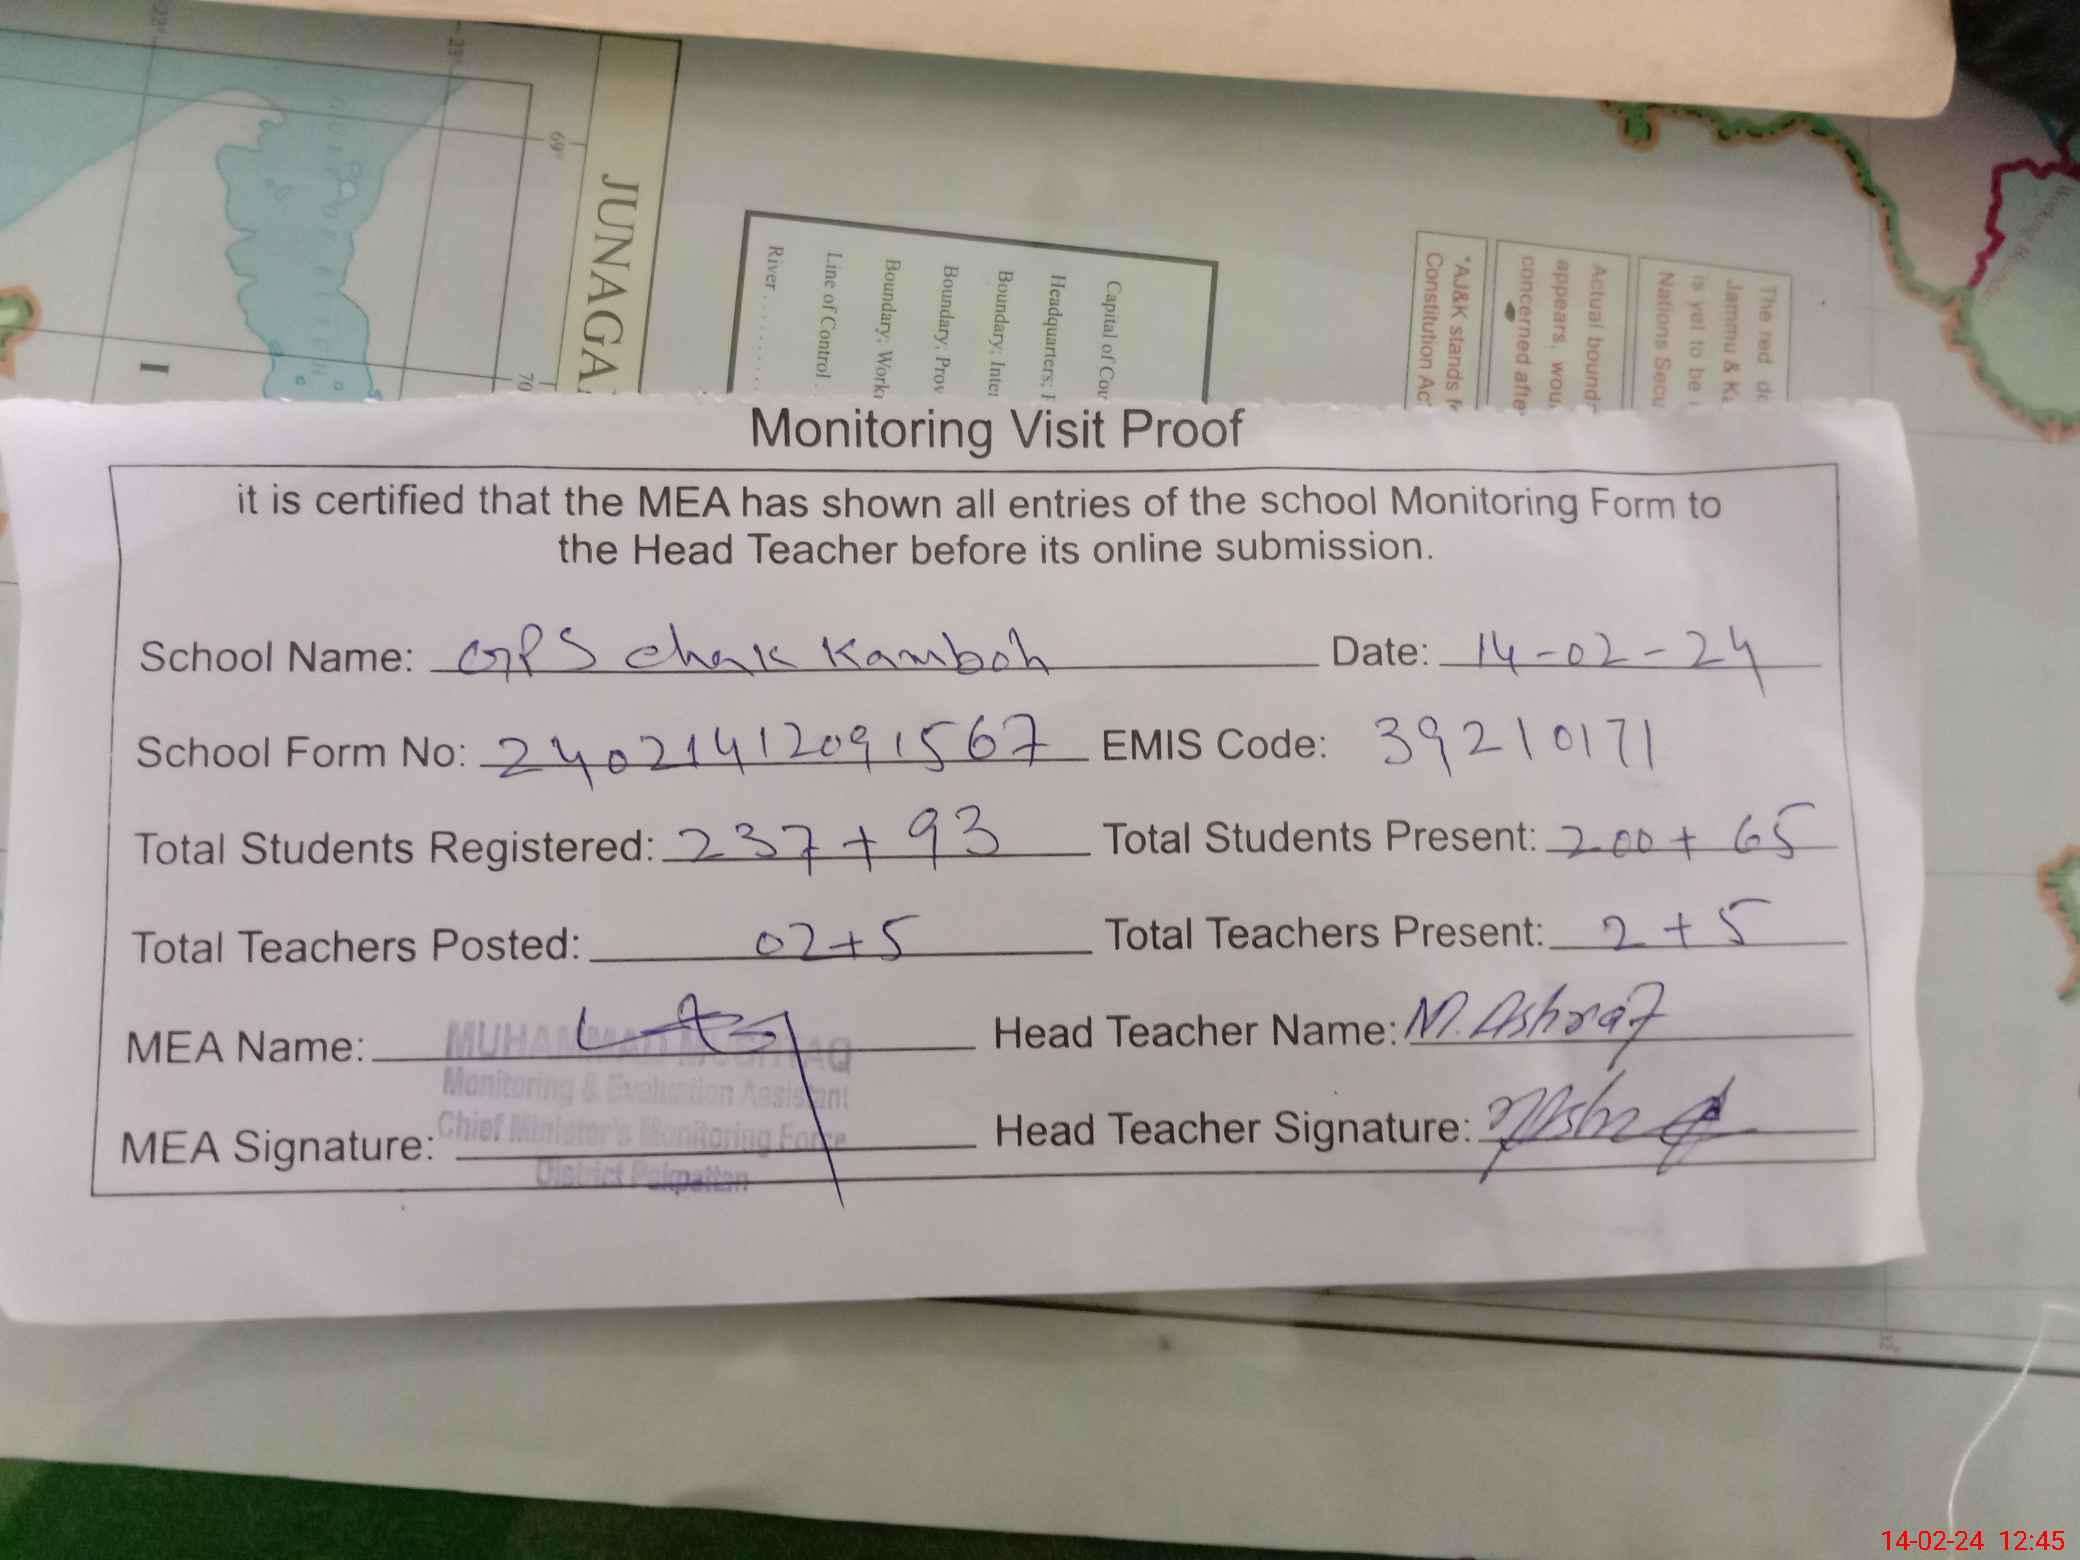 22°
23°
69°
70
JUNAGA
I
River . . . . . . . . .
Line of Control .
Boundary; Work
Boundary; Prov
Boundary; Inter
Headquarters;
Capital of Cou
*AJ&K stands f
Constitution Ac
Actual bound
appears, wou
concerned afte
The red do
Jammu & Ka
is yet to be
Nations Secu
Monitoring Visit Proof
it is certified that the MEA has shown all entries of the school Monitoring Form to
the Head Teacher before its online submission.
School Name: GPS chak Kamboh Date: 14-02-24
School Form No: 24021412091567 EMIS Code: 39210171
Total Students Registered: 237+93 Total Students Present: 200+65
Total Teachers Posted: 02+5 Total Teachers Present: 2+5
MEA Name: MUHAMMAD MUSHTAQ Head Teacher Name: M. Ashraf
Monitoring & Evaluation Assistant
Chief Minister's Monitoring Force
MEA Signature: Head Teacher Signature:
District Pakpattan
14-02-24 12:45